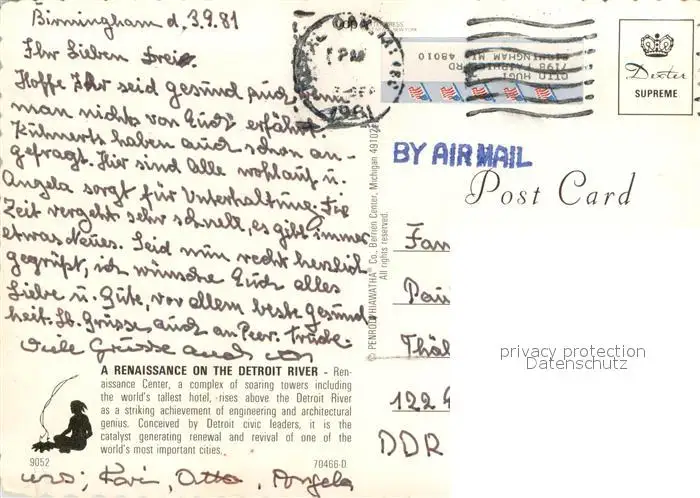 Birmingham d. 3.9.81
Ihr Lieben drei.
Hoffe Ihr seid gesund auch, wenn
man nichts von Euch erfährt.
Kühnerts haben auch schon an-
gefragt. Hir sind Alle wohlauf u.
Angela sorgt für Unterhaltung. Die
Zeit vergeht sehr schnell, es gibt immer
etwas Neues. Seid nun recht herzlich
gegrüßt, ich wünsche Euch alles
Liebe u. Gute, vor allem beste Gesund
heit. Lb. Grüsse auch an Peer.
Viele Grüsse auch von
A RENAISSANCE ON THE DETROIT RIVER - Ren-
aissance Center, a complex of soaring towers including
the world's tallest hotel, rises above the Detroit River
as a striking achievement of engineering and architectural
genius. Conceived by Detroit civic leaders, it is the
catalyst generating renewal and revival of one of the
world's most important cities.
9052
70466-D
uns; Kari, Otto, Angela
© PENROD/HIAWATHA® Co., Berrien Center, Michigan 49102
All rights reserved.
PM
1981
OTTO HUGI
7198 FAIRHILL RD
BIRMINGHAM MI 48010
Dexter
SUPREME
BY AIR MAIL
Post Card
Fam
Thäl
122
DDR
privacy protection
Datenschutz